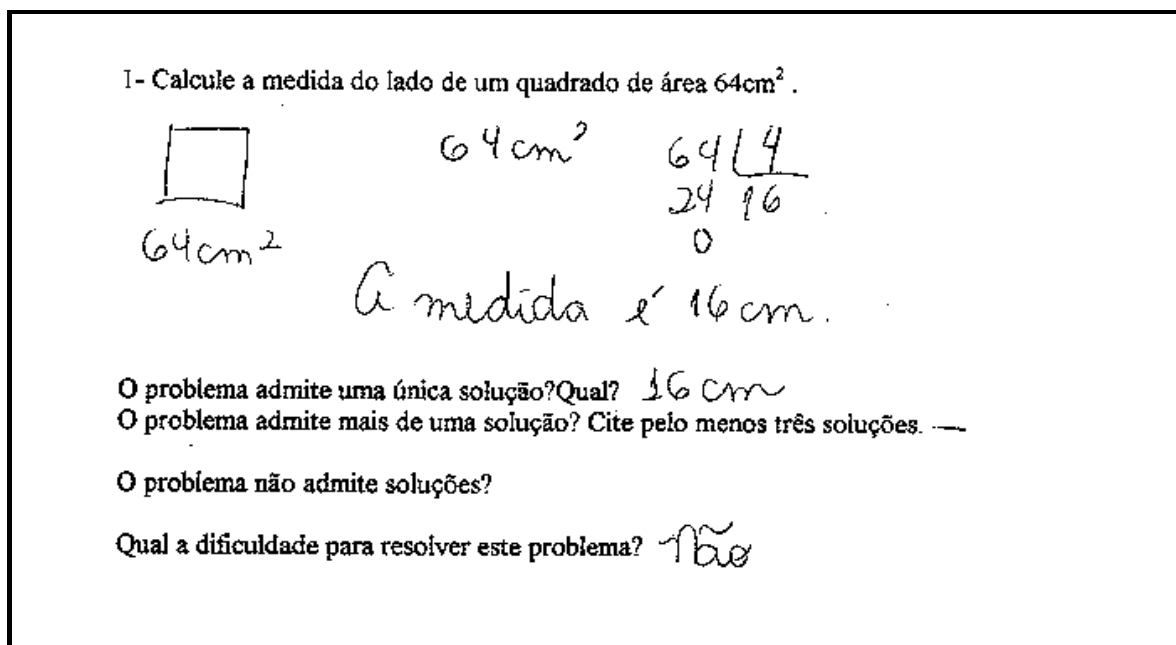 I- Calcule a medida do lado de um quadrado de área 64cm².
64cm² 64 4
24 16
0
64cm²
A medida é 16 cm.
O problema admite uma única solução?Qual? 16 cm
O problema admite mais de uma solução? Cite pelo menos três soluções. —
O problema não admite soluções?
Qual a dificuldade para resolver este problema? Não